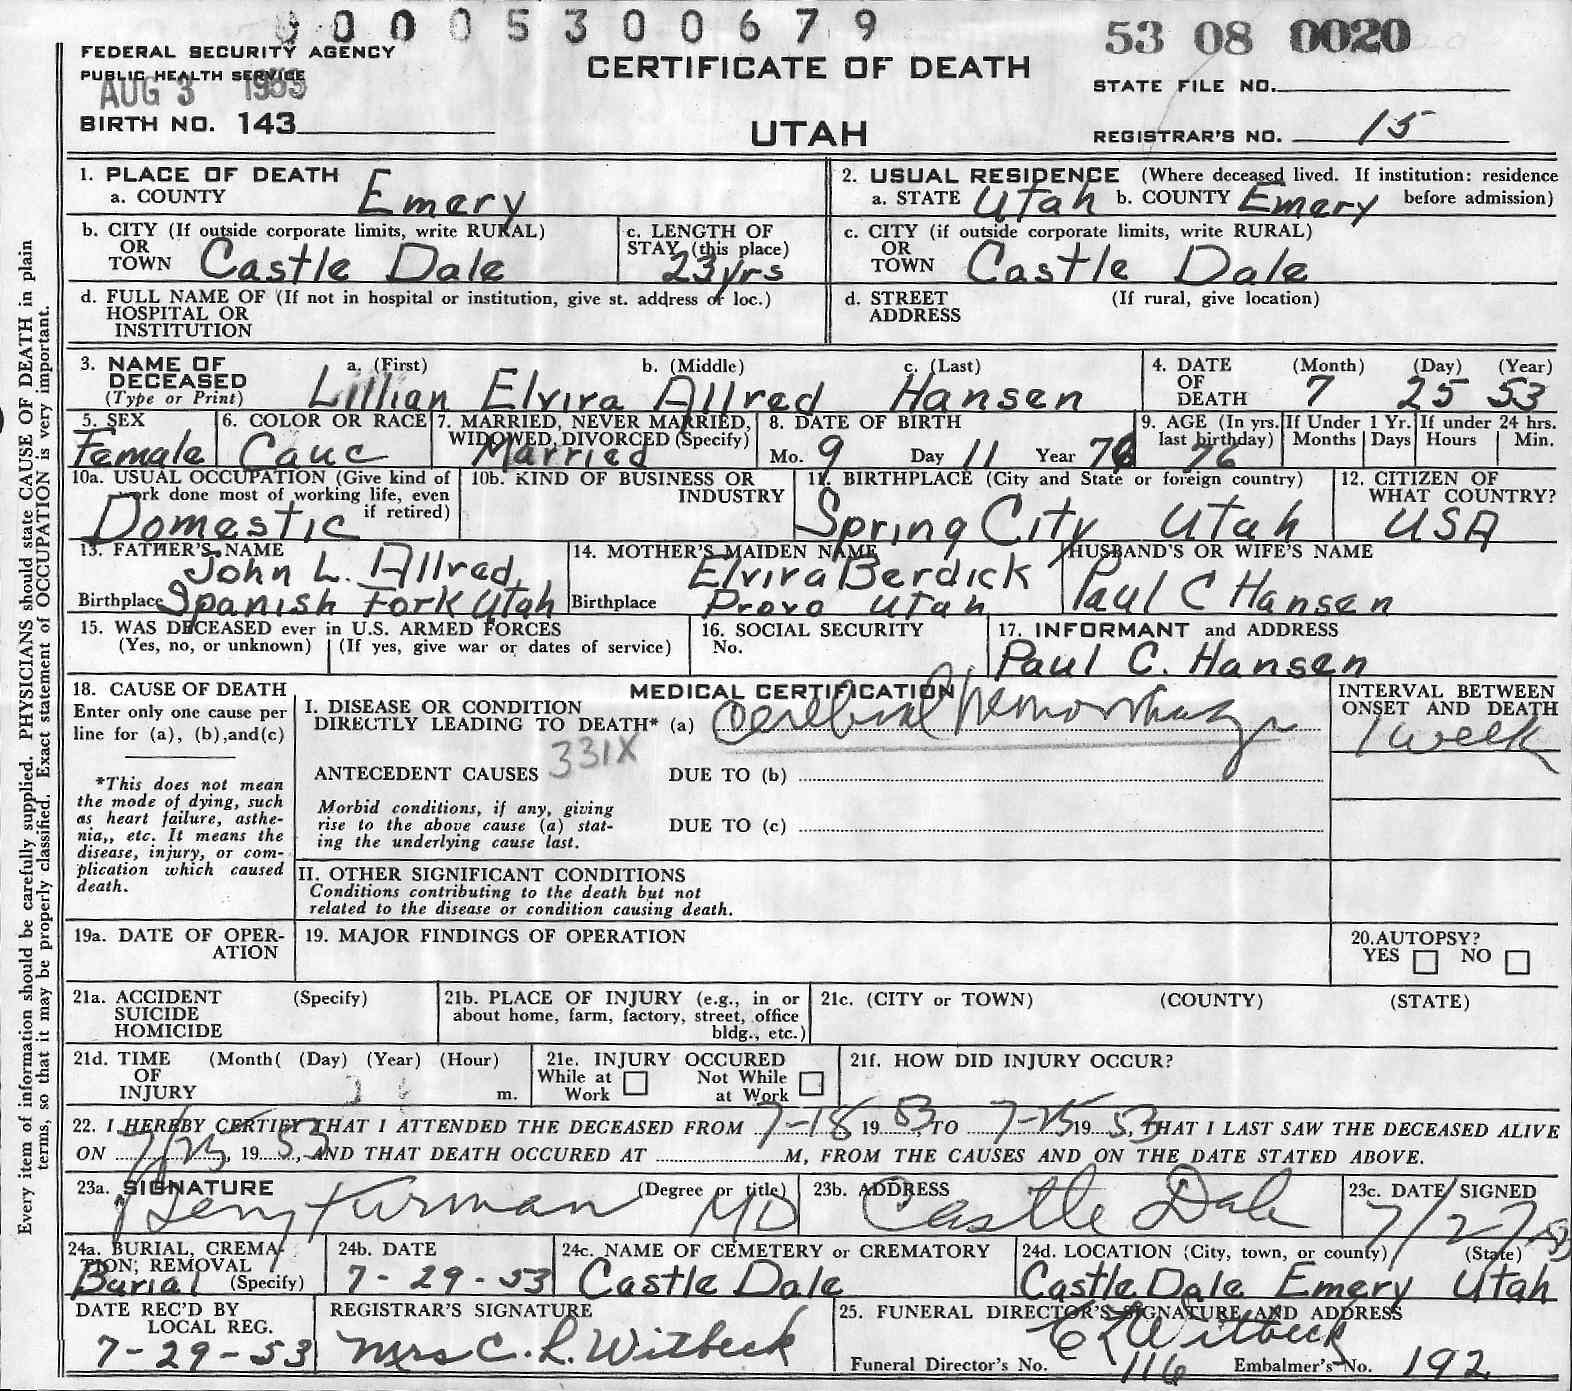 0 0 0 0 5 3 0 0 6 7 9
53 08 0020
FEDERAL SECURITY AGENCY
PUBLIC HEALTH SERVICE
AUG 3 1953
CERTIFICATE OF DEATH
STATE FILE NO.
BIRTH NO. 143
UTAH
REGISTRAR'S NO. 15
Every item of information should be carefully supplied. PHYSICIANS should state CAUSE OF DEATH in plain
terms, so that it may be properly classified. Exact statement of OCCUPATION is very important.
1. PLACE OF DEATH
a. COUNTY Emery
2. USUAL RESIDENCE (Where deceased lived. If institution: residence
a. STATE Utah b. COUNTY Emery before admission)
b. CITY (If outside corporate limits, write RURAL)
OR
TOWN Castle Dale
c. LENGTH OF
STAY (this place)
23 yrs
c. CITY (if outside corporate limits, write RURAL)
OR
TOWN Castle Dale
d. FULL NAME OF (If not in hospital or institution, give st. address or loc.)
HOSPITAL OR
INSTITUTION
d. STREET (If rural, give location)
ADDRESS
3. NAME OF a. (First) b. (Middle) c. (Last)
DECEASED
(Type or Print) Lillian Elvira Allred Hansen
4. DATE (Month) (Day) (Year)
OF
DEATH 7 25 53
5. SEX
Female
6. COLOR OR RACE
Cauc
7. MARRIED, NEVER MARRIED,
WIDOWED, DIVORCED (Specify)
Married
8. DATE OF BIRTH
Mo. 9 Day 11 Year 76
9. AGE (In yrs.
last birthday)
76
If Under 1 Yr.
Months Days
If under 24 hrs.
Hours Min.
10a. USUAL OCCUPATION (Give kind of
work done most of working life, even
if retired)
Domestic
10b. KIND OF BUSINESS OR
INDUSTRY
11. BIRTHPLACE (City and State or foreign country)
Spring City Utah
12. CITIZEN OF
WHAT COUNTRY?
USA
13. FATHER'S NAME
John L. Allred
Birthplace Spanish Fork Utah
14. MOTHER'S MAIDEN NAME
Elvira Berdick
Birthplace Provo Utah
HUSBAND'S OR WIFE'S NAME
Paul C Hansen
15. WAS DECEASED ever in U.S. ARMED FORCES
(Yes, no, or unknown) (If yes, give war or dates of service)
16. SOCIAL SECURITY
No.
17. INFORMANT and ADDRESS
Paul C. Hansen
18. CAUSE OF DEATH
Enter only one cause per
line for (a), (b),and(c)
*This does not mean
the mode of dying, such
as heart failure, asthe-
nia,, etc. It means the
disease, injury, or com-
plication which caused
death.
MEDICAL CERTIFICATION
I. DISEASE OR CONDITION
DIRECTLY LEADING TO DEATH* (a) Cerebral Hemorrhage
331X
ANTECEDENT CAUSES DUE TO (b)
Morbid conditions, if any, giving
rise to the above cause (a) stat-
ing the underlying cause last.
DUE TO (c)
II. OTHER SIGNIFICANT CONDITIONS
Conditions contributing to the death but not
related to the disease or condition causing death.
INTERVAL BETWEEN
ONSET AND DEATH
1 week
19a. DATE OF OPER-
ATION
19. MAJOR FINDINGS OF OPERATION
20.AUTOPSY?
YES NO
21a. ACCIDENT (Specify)
SUICIDE
HOMICIDE
21b. PLACE OF INJURY (e.g., in or
about home, farm, factory, street, office
bldg., etc.)
21c. (CITY or TOWN) (COUNTY) (STATE)
21d. TIME (Month( (Day) (Year) (Hour)
OF
INJURY m.
21e. INJURY OCCURED
While at Work Not While at Work
21f. HOW DID INJURY OCCUR?
22. I HEREBY CERTIFY THAT I ATTENDED THE DECEASED FROM 7-18 19 53, TO 7-25 19 53, THAT I LAST SAW THE DECEASED ALIVE
ON 7/25, 19 53, AND THAT DEATH OCCURED AT M, FROM THE CAUSES AND ON THE DATE STATED ABOVE.
23a. SIGNATURE (Degree or title)
MD
23b. ADDRESS
Castle Dale
23c. DATE SIGNED
7/27/53
24a. BURIAL, CREMA-
TION, REMOVAL
Burial (Specify)
24b. DATE
7-29-53
24c. NAME OF CEMETERY or CREMATORY
Castle Dale
24d. LOCATION (City, town, or county) (State)
Castle Dale Emery Utah
DATE REC'D BY
LOCAL REG.
7-29-53
REGISTRAR'S SIGNATURE
Mrs C. L. Witbeck
25. FUNERAL DIRECTOR'S SIGNATURE AND ADDRESS
C L Witbeck
Funeral Director's No. 116 Embalmer's No. 192